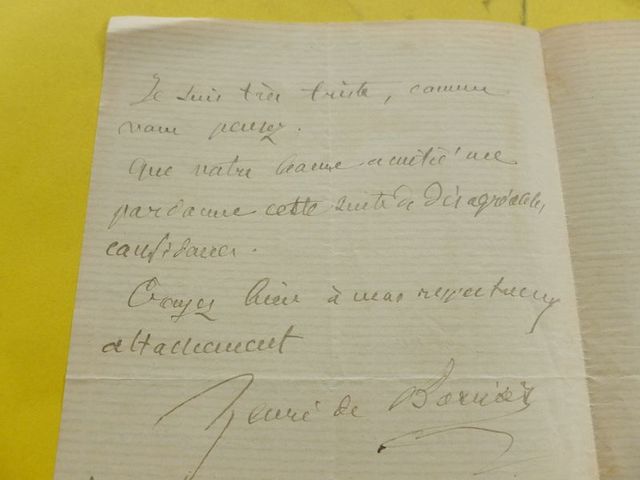 Je suis très triste, comme
vous pensez.
Que votre bonne amitié me
pardonne cette suite de désagréables
confidences.
Croyez bien à mon respectueux
attachement
Henri de Bornier